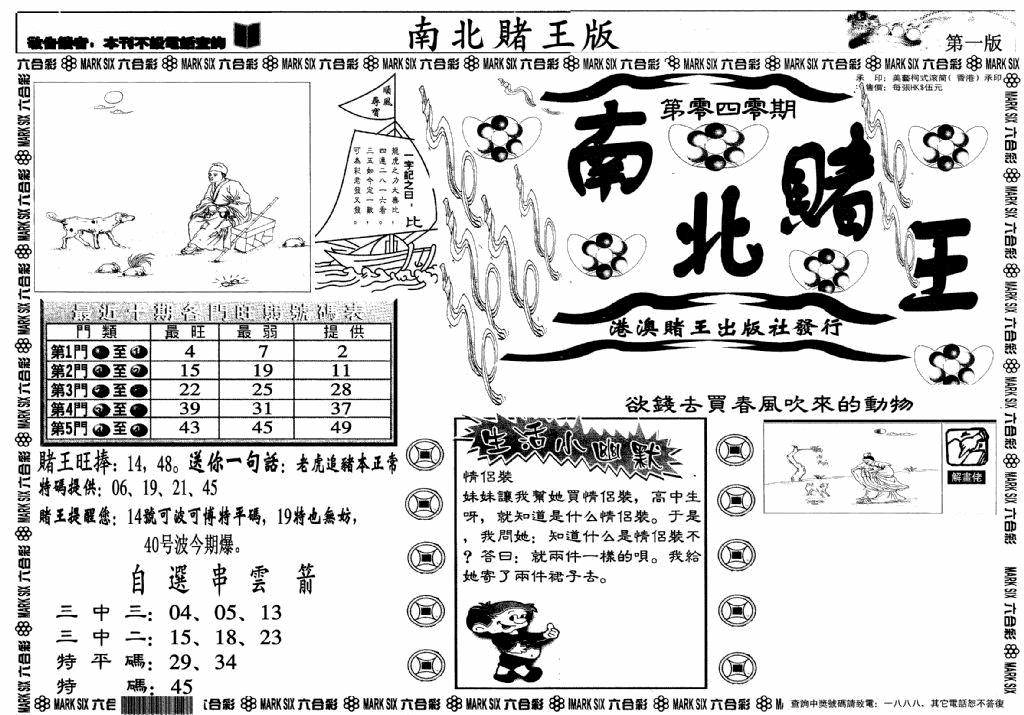 敬告讀者：本刊不設電話查詢
南北賭王版
第一版
六合彩 MARK SIX 六合彩 MARK SIX 六合彩 MARK SIX 六合彩 MARK SIX 六合彩 MARK SIX 六合彩 MARK SIX 六合彩 MARK SIX 六合彩 MARK SIX 六合彩 MARK SIX 六合彩 MARK SIX
承 印：美藝柯式滾筒(香港)承印
售價：每張HK$伍元
順風
尋寶
一字記之曰：比
龍虎之力大無比，
四通二八一六看
三五如今定一數，
可為彩老發又發。
第零四零期
南北賭王
港澳賭王出版社發行
最近十期各門旺與號碼表
門類 最旺 最弱 提供
第1門 至 4 7 2
第2門 至 15 19 11
第3門 至 22 25 28
第4門 至 39 31 37
第5門 至 43 45 49
賭王旺捧：14，48。送你一句話：老虎追豬本正常
特碼提供：06、19、21、45
賭王提醒您：14號可波可博特平碼，19特也無妨，
40号波今期爆。
自選串雲箭
三中三：04、05、13
三中二：15、18、23
特平碼：29、34
特碼：45
生活小幽默
情侶裝
妹妹讓我幫她買情侶裝，高中生
呀，就知道是什么情侶裝。于是
，我問她：知道什么是情侶裝不
？答曰：就兩件一樣的唄。我給
她寄了兩件裙子去。
欲錢去買春風吹來的動物
解畫佬
六合彩 MARK SIX 六合彩 MARK SIX 六合彩 MARK SIX 六合彩 MARK SIX 六合彩 MARK SIX 六合彩 MARK SIX
查詢中獎號碼請致電：一八八八、其它電話恕不答復